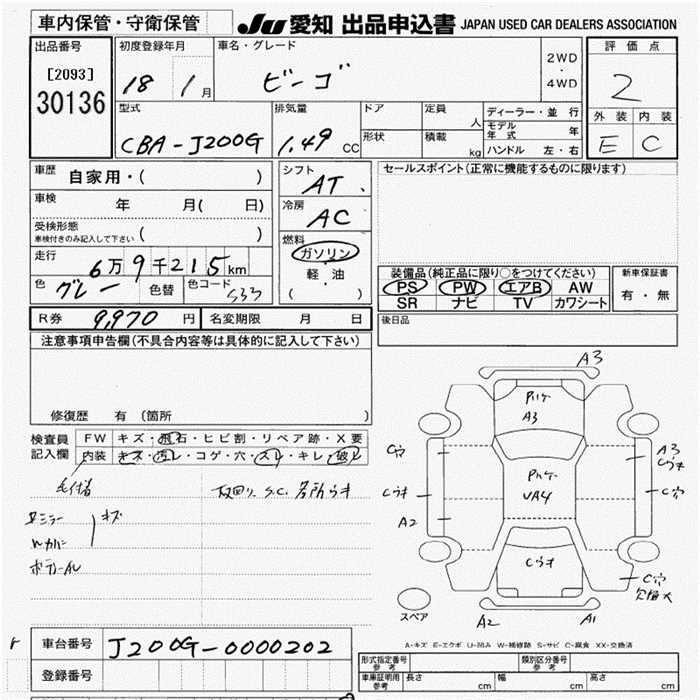 車内保管・守衛保管
JU 愛知 出品申込書 JAPAN USED CAR DEALERS ASSOCIATION
出品番号
[2093]
30136
初度登録年月
18 1月
車名・グレード
ビーゴ
2WD
・
4WD
評価点
2
外装 内装
E C
型式
CBA-J200G
排気量
1.49 CC
ドア
形状
定員
人
積載
kg
ディーラー・並行
モデル年式 年
ハンドル 左・右
車歴 自家用・( )
車検 年 月( 日)
受検形態
車検付きのみ記入して下さい ( )
走行
6万9千215km
色 グレー 色替 色コード S33
シフト
AT
冷房
AC
燃料
ガソリン
・
軽油
( )
セールスポイント(正常に機能するものに限ります)
装備品(純正品に限り○をつけてください)
PS PW エアB AW
SR ナビ TV カワシート
新車保証書
有・無
後日品
R券 9,970 円 名変期限 月 日
注意事項申告欄(不具合内容等は具体的に記入して下さい)
修復歴 有(箇所 )
検査員記入欄
FW キズ・飛石・ヒビ割・リペア跡・X要
内装 キズ・汚レ・コゲ・穴・スレ・キレ・破レ
下回り S.C. 各所ウキ
キズ
A3
A3
UA4
Cウキ
C穴
Cウキ
A2
A3
Cウキ
C穴
C穴
A2
A1
スペア
A-キズ E-エクボ U-凹み W-補修跡 S-サビ C-腐食 XX-交換済
車台番号 J200G-0000202
登録番号
型式指定番号
参考
類別区分番号
参考
車庫証明用
参考
長さ cm 幅 cm 高さ cm